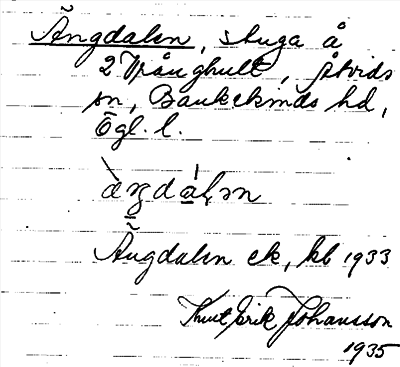 Ängdalen, stuga å
2 Vrånghult, Åtvids
sn, Bankekinds hd,
Ögl. l.
àŋdáln
Ängdalen ek, kb 1933
Knut Erik Johansson
1935